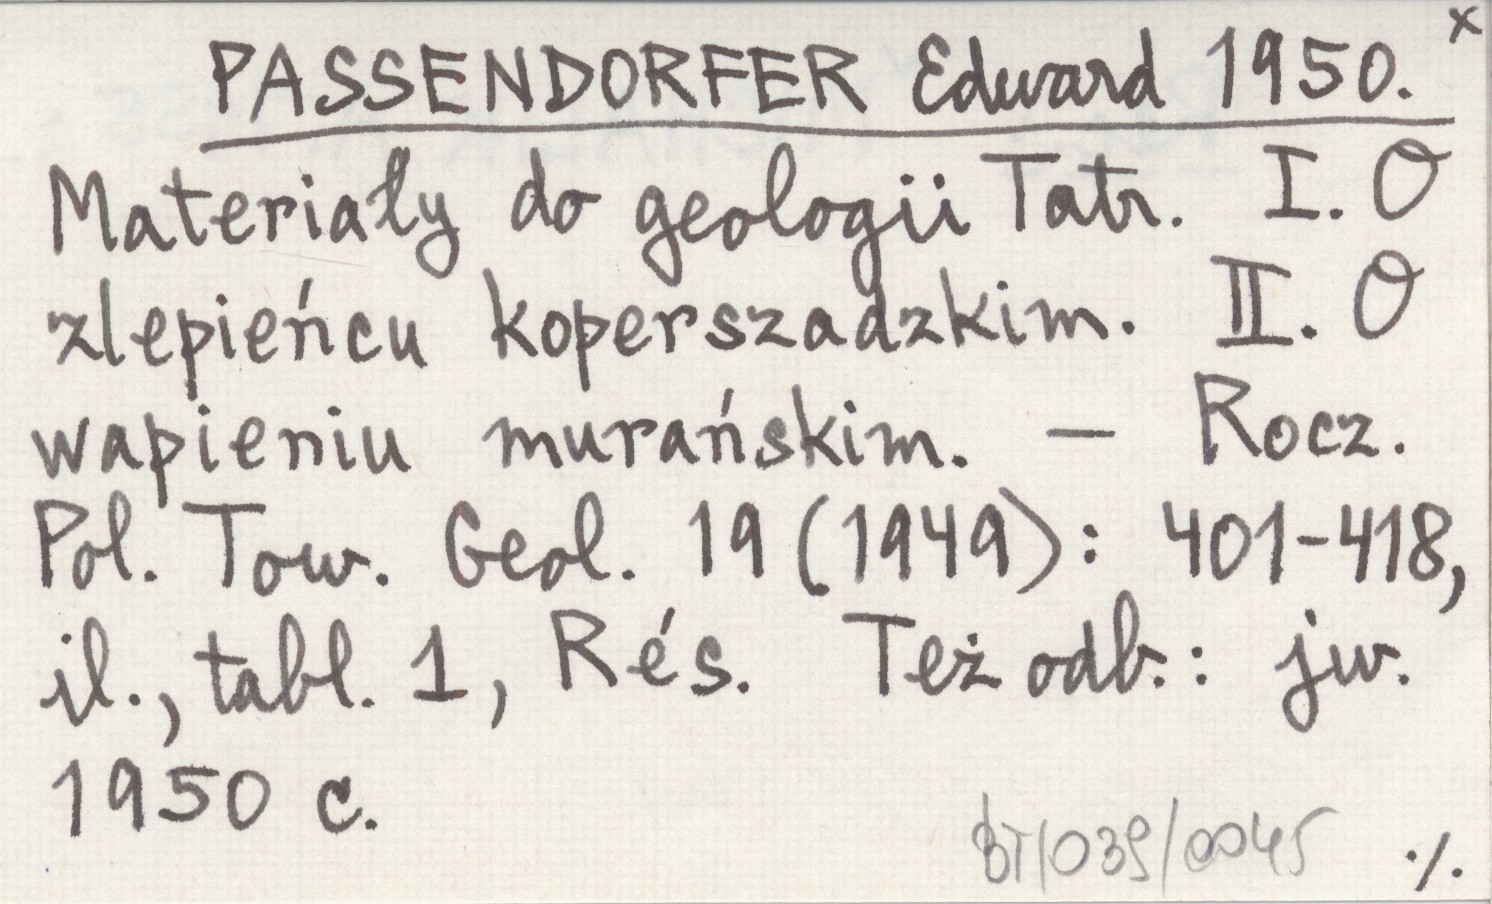 x
PASSENDORFER Edward 1950.
Materiały do geologii Tatr. I. O
zlepieńcu koperszadzkim. II. O
wapieniu murańskim. – Rocz.
Pol. Tow. Geol. 19 (1949): 401-418,
il., tabl. 1, Rés. Też odb.: jw.
1950 c.
BT/039/0045 ·/.